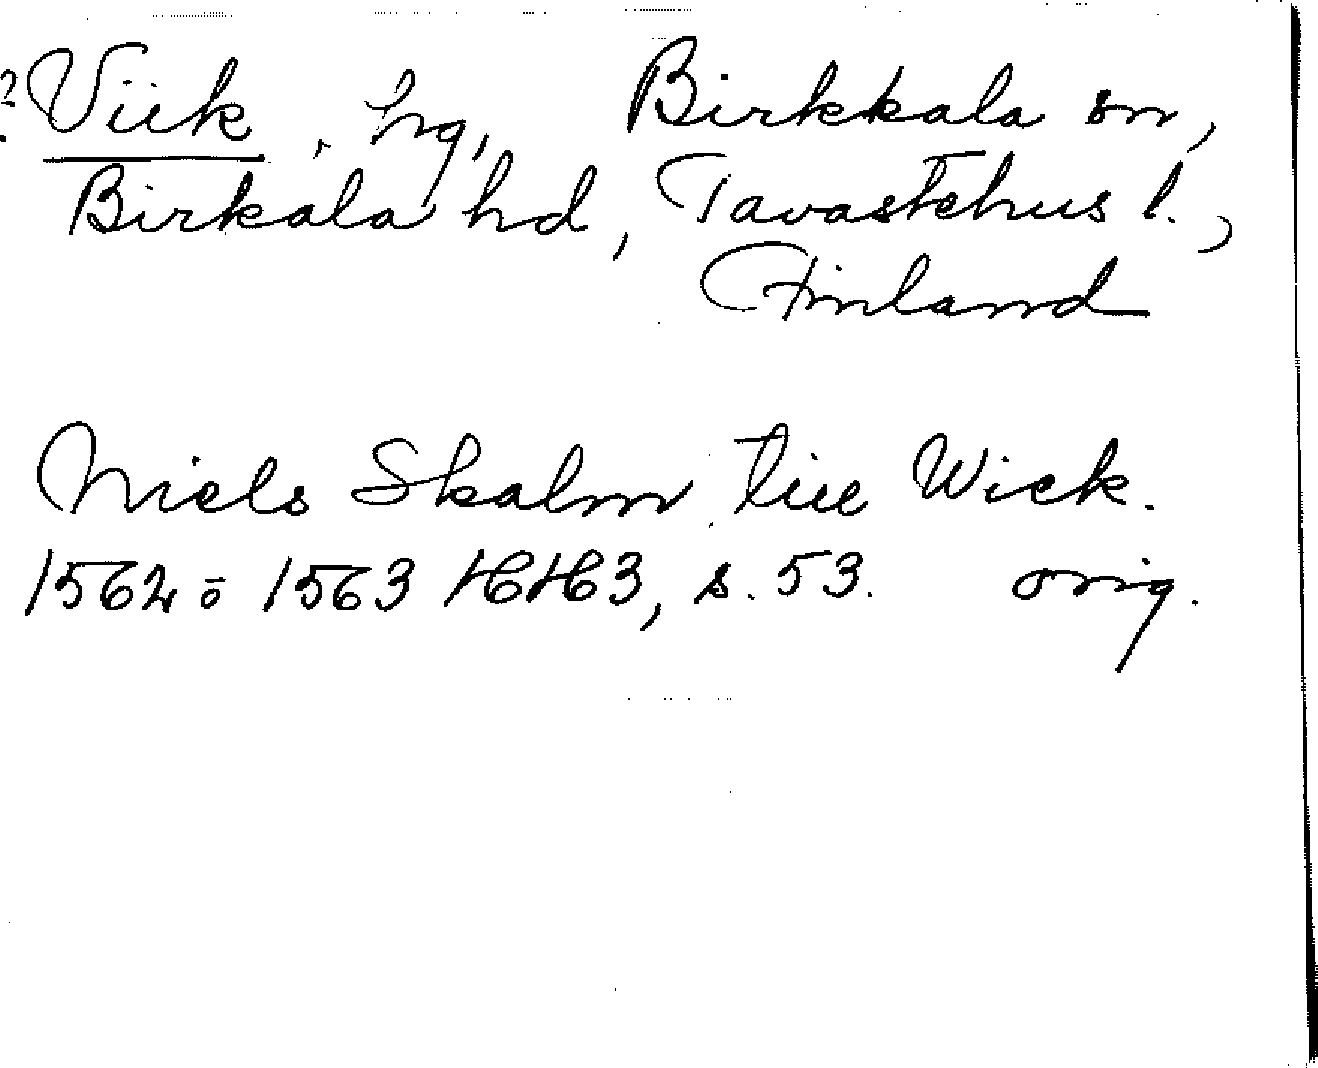 ? Viik, hg, Birkkala sn,
Birkala hd, Tavastehus l.,
Finland
Niels Skalm tiil Wick.
1562 ō 1563 HH3, s. 53. orig.